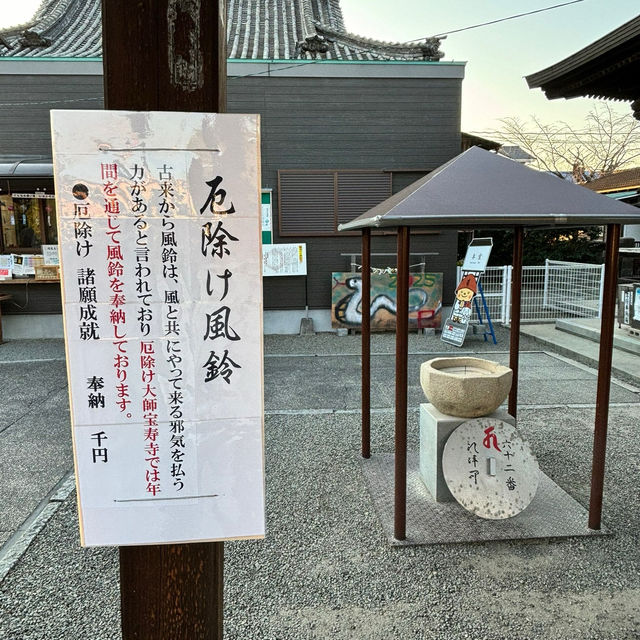 厄除け風鈴
古来から風鈴は、風と共にやって来る邪気を払う
力があると言われており厄除け大師宝寿寺では年
間を通じて風鈴を奉納しております。
●厄除け 諸願成就 奉納 千円
六十二番